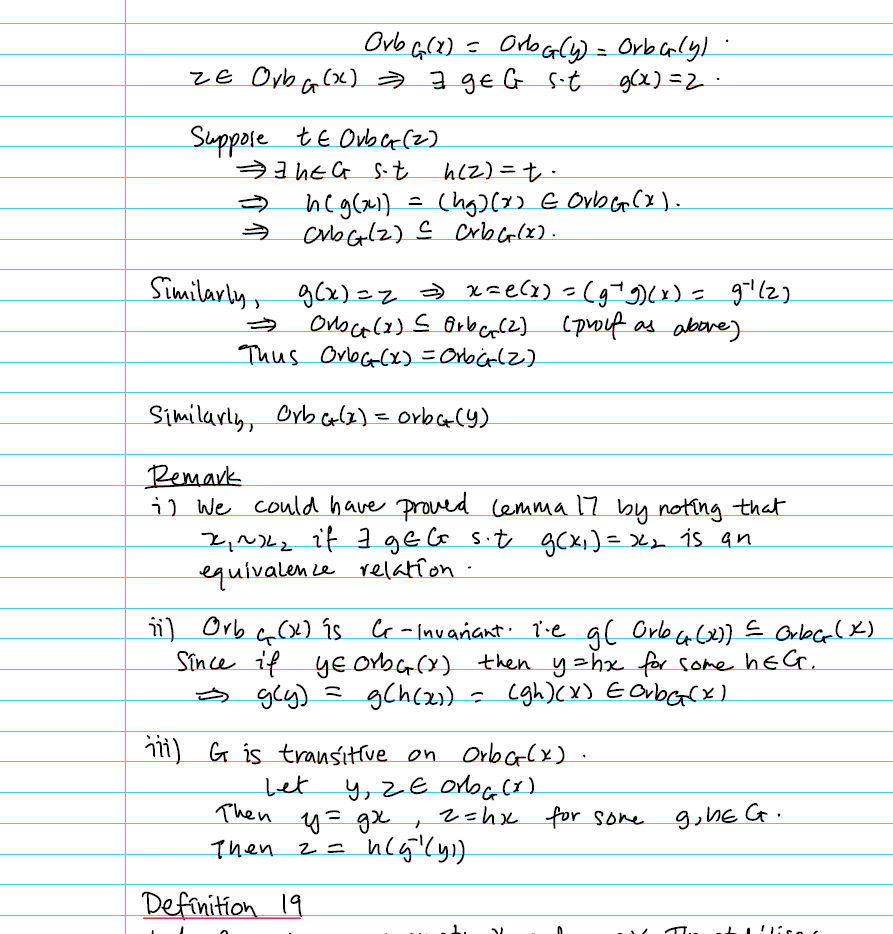 Orb_G(x) = Orb_G(y) = Orb_G(y) .
z ∈ Orb_G(x) ⇒ ∃ g ∈ G s.t g(x) = z .
Suppose t ∈ Orb_G(z)
⇒ ∃ h ∈ G s.t h(z) = t .
⇒ h(g(x)) = (hg)(x) ∈ Orb_G(x).
⇒ Orb_G(z) ⊆ Orb_G(x).
Similarly, g(x) = z ⇒ x = e(x) = (g⁻¹g)(x) = g⁻¹(z)
⇒ Orb_G(x) ⊆ Orb_G(z) (proof as above)
Thus Orb_G(x) = Orb_G(z)
Similarly, Orb_G(z) = orb_G(y)
Remark
i) We could have proved lemma 17 by noting that
x₁~x₂ if ∃ g ∈ G s.t g(x₁) = x₂ is an
equivalence relation .
ii) Orb_G(x) is G-invariant. i.e g( Orb_G(x)) ⊆ Orb_G(x)
Since if y ∈ Orb_G(x) then y = hx for some h ∈ G.
⇒ g(y) = g(h(x)) = (gh)(x) ∈ Orb_G(x)
iii) G is transitive on Orb_G(x) .
Let y, z ∈ Orb_G(x)
Then y = gx , z = hx for some g, h ∈ G .
Then z = h(g⁻¹(y))
Definition 19